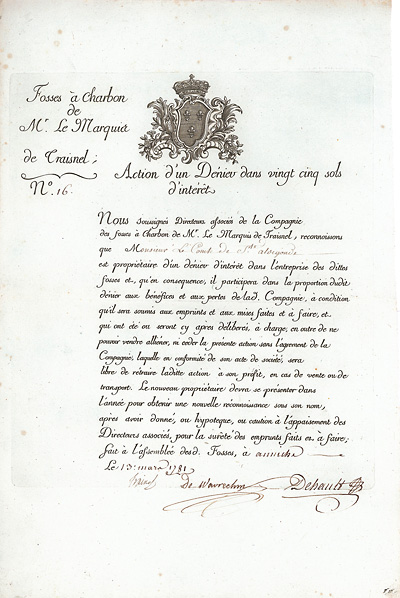 Fosses à Charbon
de
Mr. Le Marquis
de Traisnel;
No. 16.
Action d'un Dénier dans vingt cinq sols
d'intérêt
Nous soussignés Directeurs associés de la Compagnie
des fosses à Charbon de Mr. Le Marquis de Traisnel, reconnoissons
que Monsieur Le Comte de Ste. aldegonde
est propriétaire d'un dénier d'intérêt dans l'entreprise des dittes
fosses et, qu'en conséquence, il participera dans la proportion dudit
dénier aux bénéfices et aux pertes de lad. Compagnie, à condition
qu'il sera soumis aux emprunts et aux mises faites et à faire, et
qui ont été ou seront cy après délibérés, à charge, en outre de ne
pouvoir vendre alliéner, ni céder la presente action sans l'agrement de la
Compagnie, laquelle en conformité de son acte de société, sera
libre de retraire laditte action à son profit, en cas de vente ou de
transport. Le nouveau propriétaire devra se présenter dans
l'année pour obtenir une nouvelle réconnoissance sous son nom,
après avoir donné, ou hypoteque, ou caution à l'appaisement des
Directeurs associés, pour la sureté des emprunts faits et à faire;
fait à l'assemblée desd. Fosses, à aniche
Le 13 mars 1781
De Wavrechin Dehault